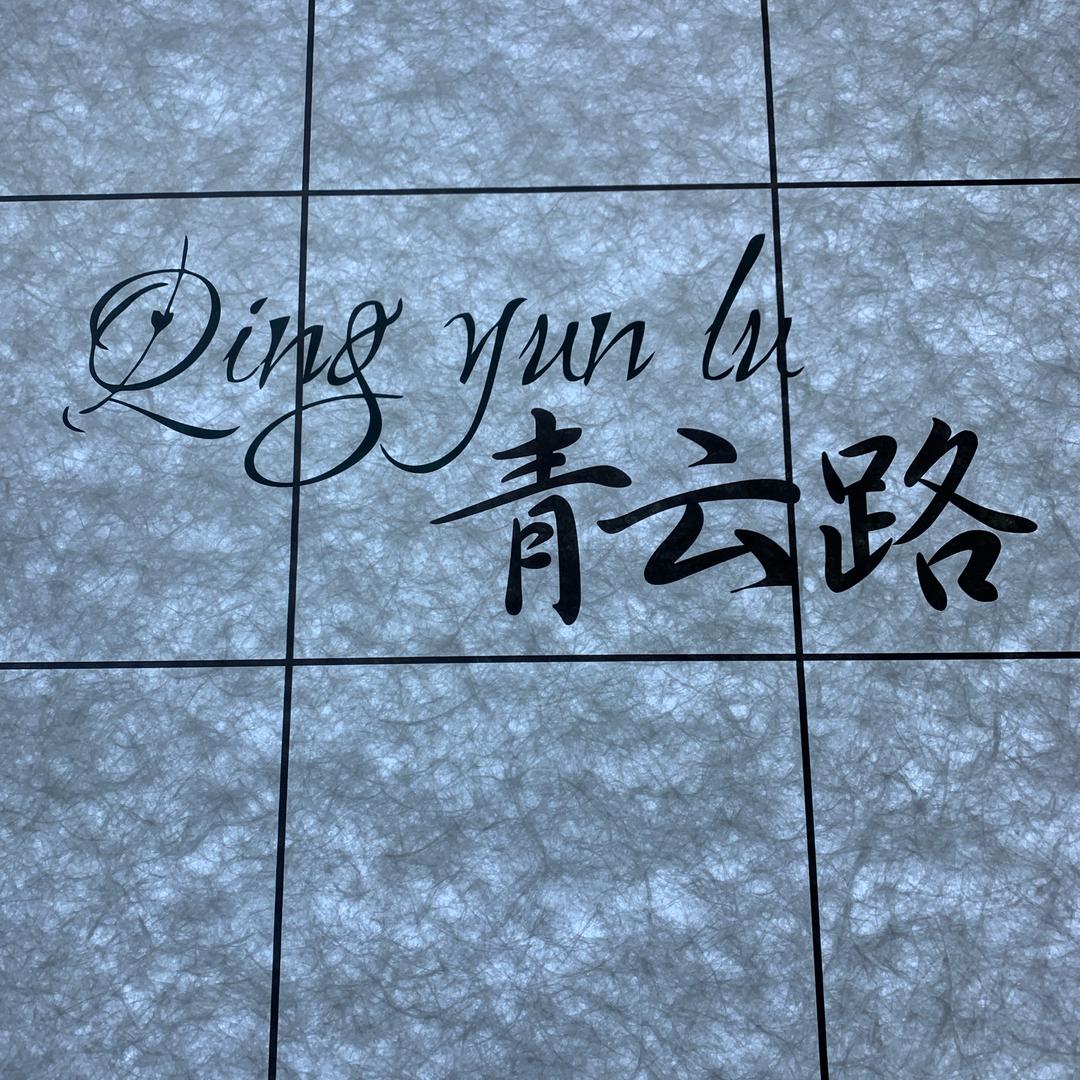 Qing yun lu
青云路